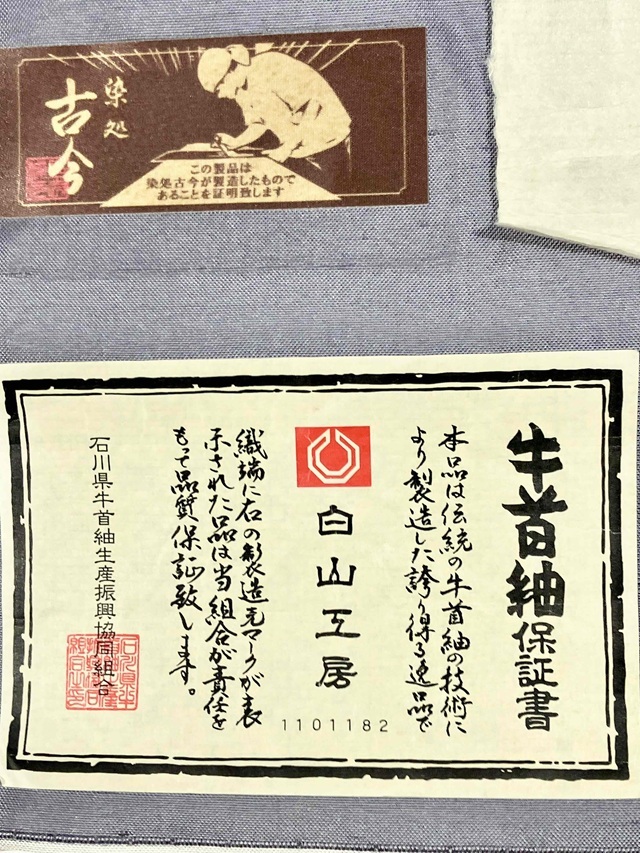 染処
古今
この製品は
染処古今が製造したもので
あることを証明致します
牛首紬保証書
本品は伝統の牛首紬の技術に
より製造した誇り得る逸品で
白山工房
1101182
織端に右の製造元マークが表
示された品は当組合が責任を
もって品質保証致します。
石川県牛首紬生産振興協同組合